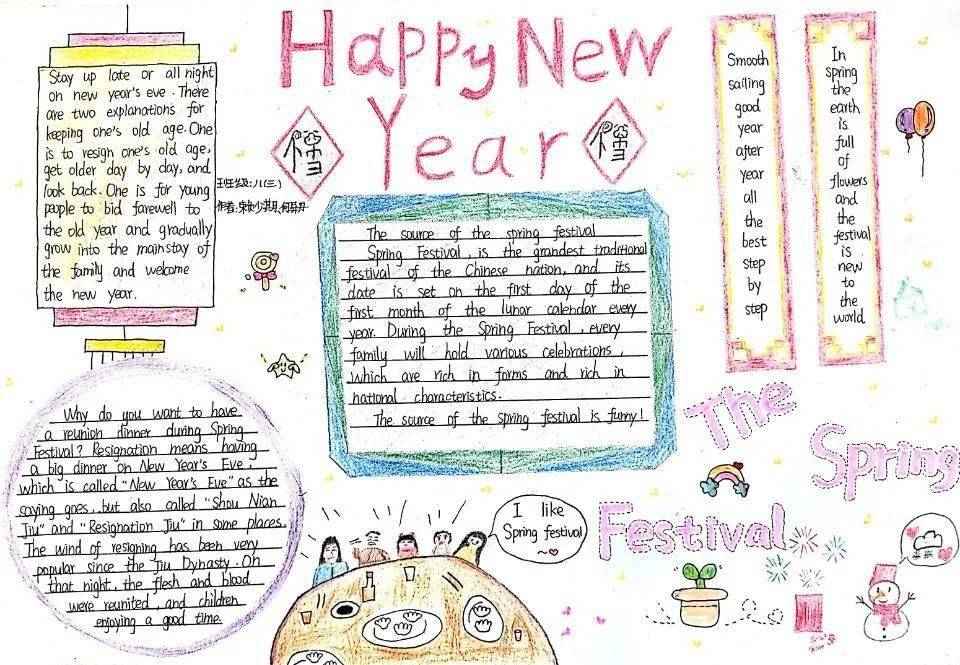 Happy New
Year
Stay up late or all night
on new year's eve. There
are two explanations for
keeping one's old age. One
is to resign one's old age,
get older day by day, and
look back. One is for young
people to bid farewell to
the old year and gradually
grow into the mainstay of
the family and welcome
the new year.
班级:八(三)
作者:
The source of the spring festival
Spring Festival, is the grandest traditional
festival of the Chinese nation, and its
date is set on the first day of the
first month of the lunar calendar every
year. During the Spring Festival, every
family will hold various celebrations,
which are rich in forms and rich in
national characteristics.
The source of the spring festival is funny!
Smooth
sailing
good
year
after
year
all
the
best
step
by
step
In
spring
the
earth
is
full
of
flowers
and
the
festival
is
new
to
the
world
Why do you want to have
a reunion dinner during Spring
Festival? Resignation means having
a big dinner on New Year's Eve,
which is called "New Year's Eve" as the
saying goes, but also called "Shou Nian
Jiu" and "Resignation Jiu" in some places.
The wind of resigning has been very
popular since the Jiu Dynasty. On
that night, the flesh and blood
were reunited, and children
enjoying a good time.
I like
Spring festival
The
Spring
Festival